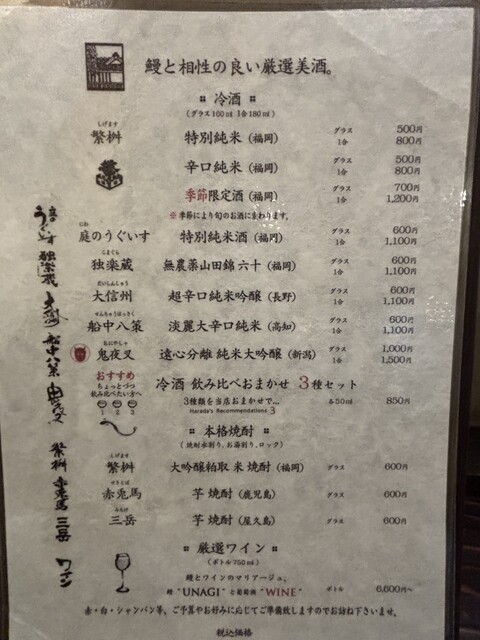 鰻と相性の良い厳選美酒。
冷酒
(グラス100ml 1合180ml)
しげます
繁桝 特別純米(福岡) グラス 500円
1合 800円
辛口純米(福岡) グラス 500円
1合 800円
季節限定酒(福岡) グラス 700円
1合 1,200円
※季節により旬のお酒にまわります。
にわ
庭のうぐいす 特別純米酒(福岡) グラス 600円
1合 1,100円
こまくら
独楽蔵 無農薬山田錦 六十(福岡) グラス 600円
1合 1,100円
だいしんしゅう
大信州 超辛口純米吟醸(長野) グラス 600円
1合 1,100円
せんちゅうはっさく
船中八策 淡麗大辛口純米(高知) グラス 600円
1合 1,100円
おにやしゃ
鬼夜叉 遠心分離 純米大吟醸(新潟) グラス 1,000円
1合 1,500円
おすすめ
ちょっとづつ
飲み比べたい方へ
1 2 3
冷酒 飲み比べおまかせ 3種セット
3種類を当店おまかせで… 各50ml 850円
Harada's Recommendations 3
本格焼酎
(焼酎水割り、お湯割り、ロック)
しげます
繁桝 大吟醸粕取 米 焼酎(福岡) グラス 600円
せきとば
赤兎馬 芋 焼酎(鹿児島) グラス 600円
みたけ
三岳 芋 焼酎(屋久島) グラス 600円
厳選ワイン
(ボトル750ml)
鰻とワインのマリアージュ。
鰻 "UNAGI" と葡萄酒 "WINE" ボトル 6,600円~
赤・白・シャンパン等、ご予算やお好みに応じてご準備致しますのでお訪ね下さいませ。
税込価格
庭のうぐいす
独楽蔵
大信州
船中八策
鬼夜叉
繁桝
赤兎馬
三岳
ワイン